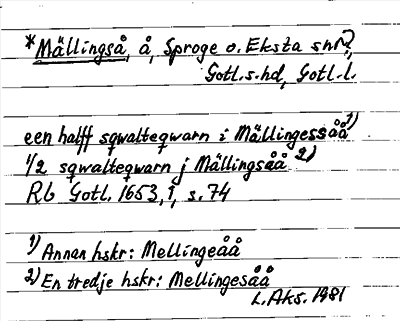 *Mällingså, å, Sproge o. Eksta snr?,
Gotl.s.hd, Gotl.l.
een halff sqwalteqwarn i Mällingessåå 1)
1/2 sqwalteqwarn j Mällingsåå 2)
Rb Gotl. 1653,1, s.74
1) Annan hskr: Mellingeåå
2) En tredje hskr: Mellingesåå
L.Aks. 1981